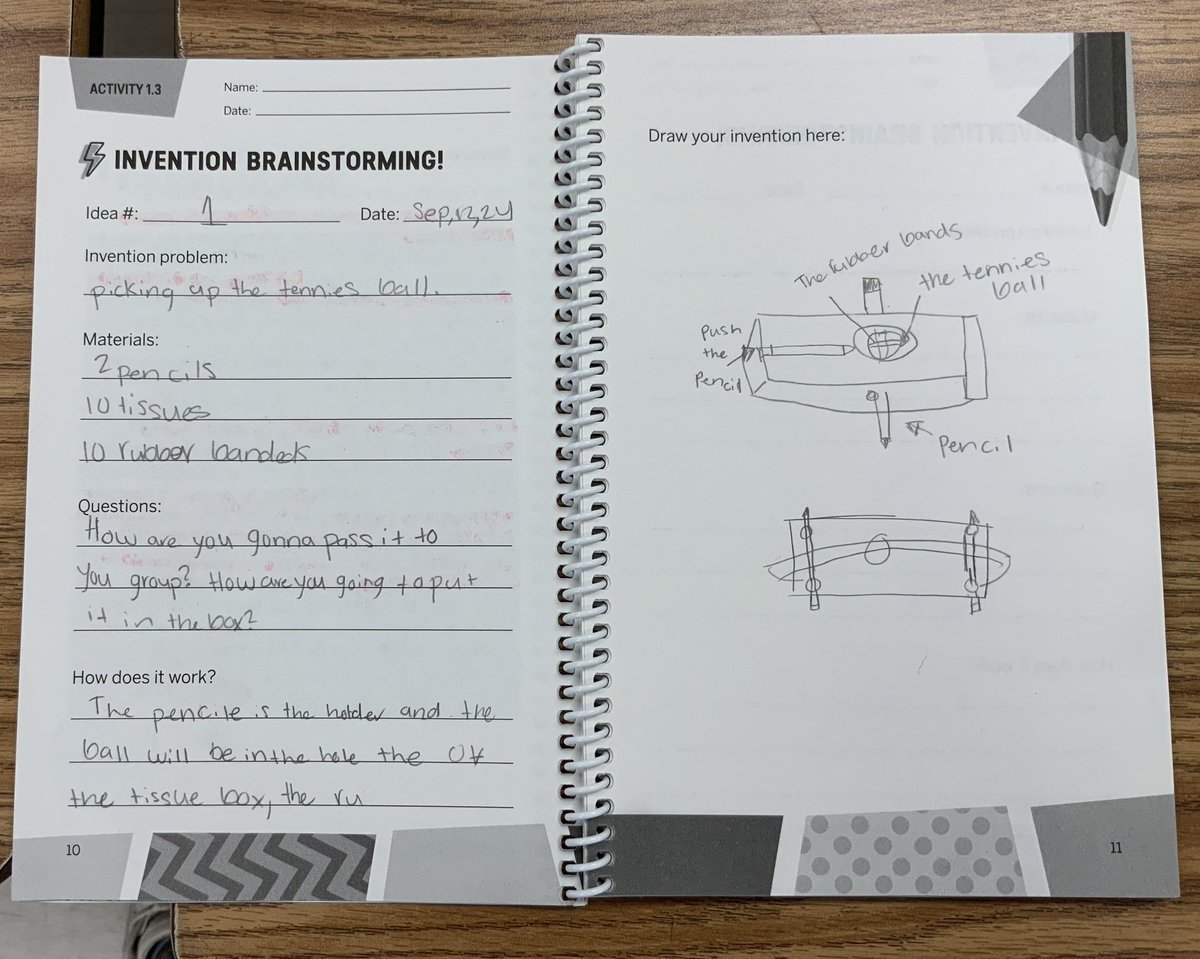 ACTIVITY 1.3
Name:
Date:
INVENTION BRAINSTORMING!
Idea #: 1 Date: Sep,12,24
Invention problem:
picking up the tennies ball.
Materials:
2 pencils
10 tissues
10 rubber bandeds
Questions:
How are you gonna pass it to
you group? How are you going to put
it in the box?
How does it work?
The pencile is the holder and the
ball will be in the hole the of
the tissue box, the ru
10
Draw your invention here:
The rubber bands
the tennies
ball
Push
the
Pencil
Pencil
11